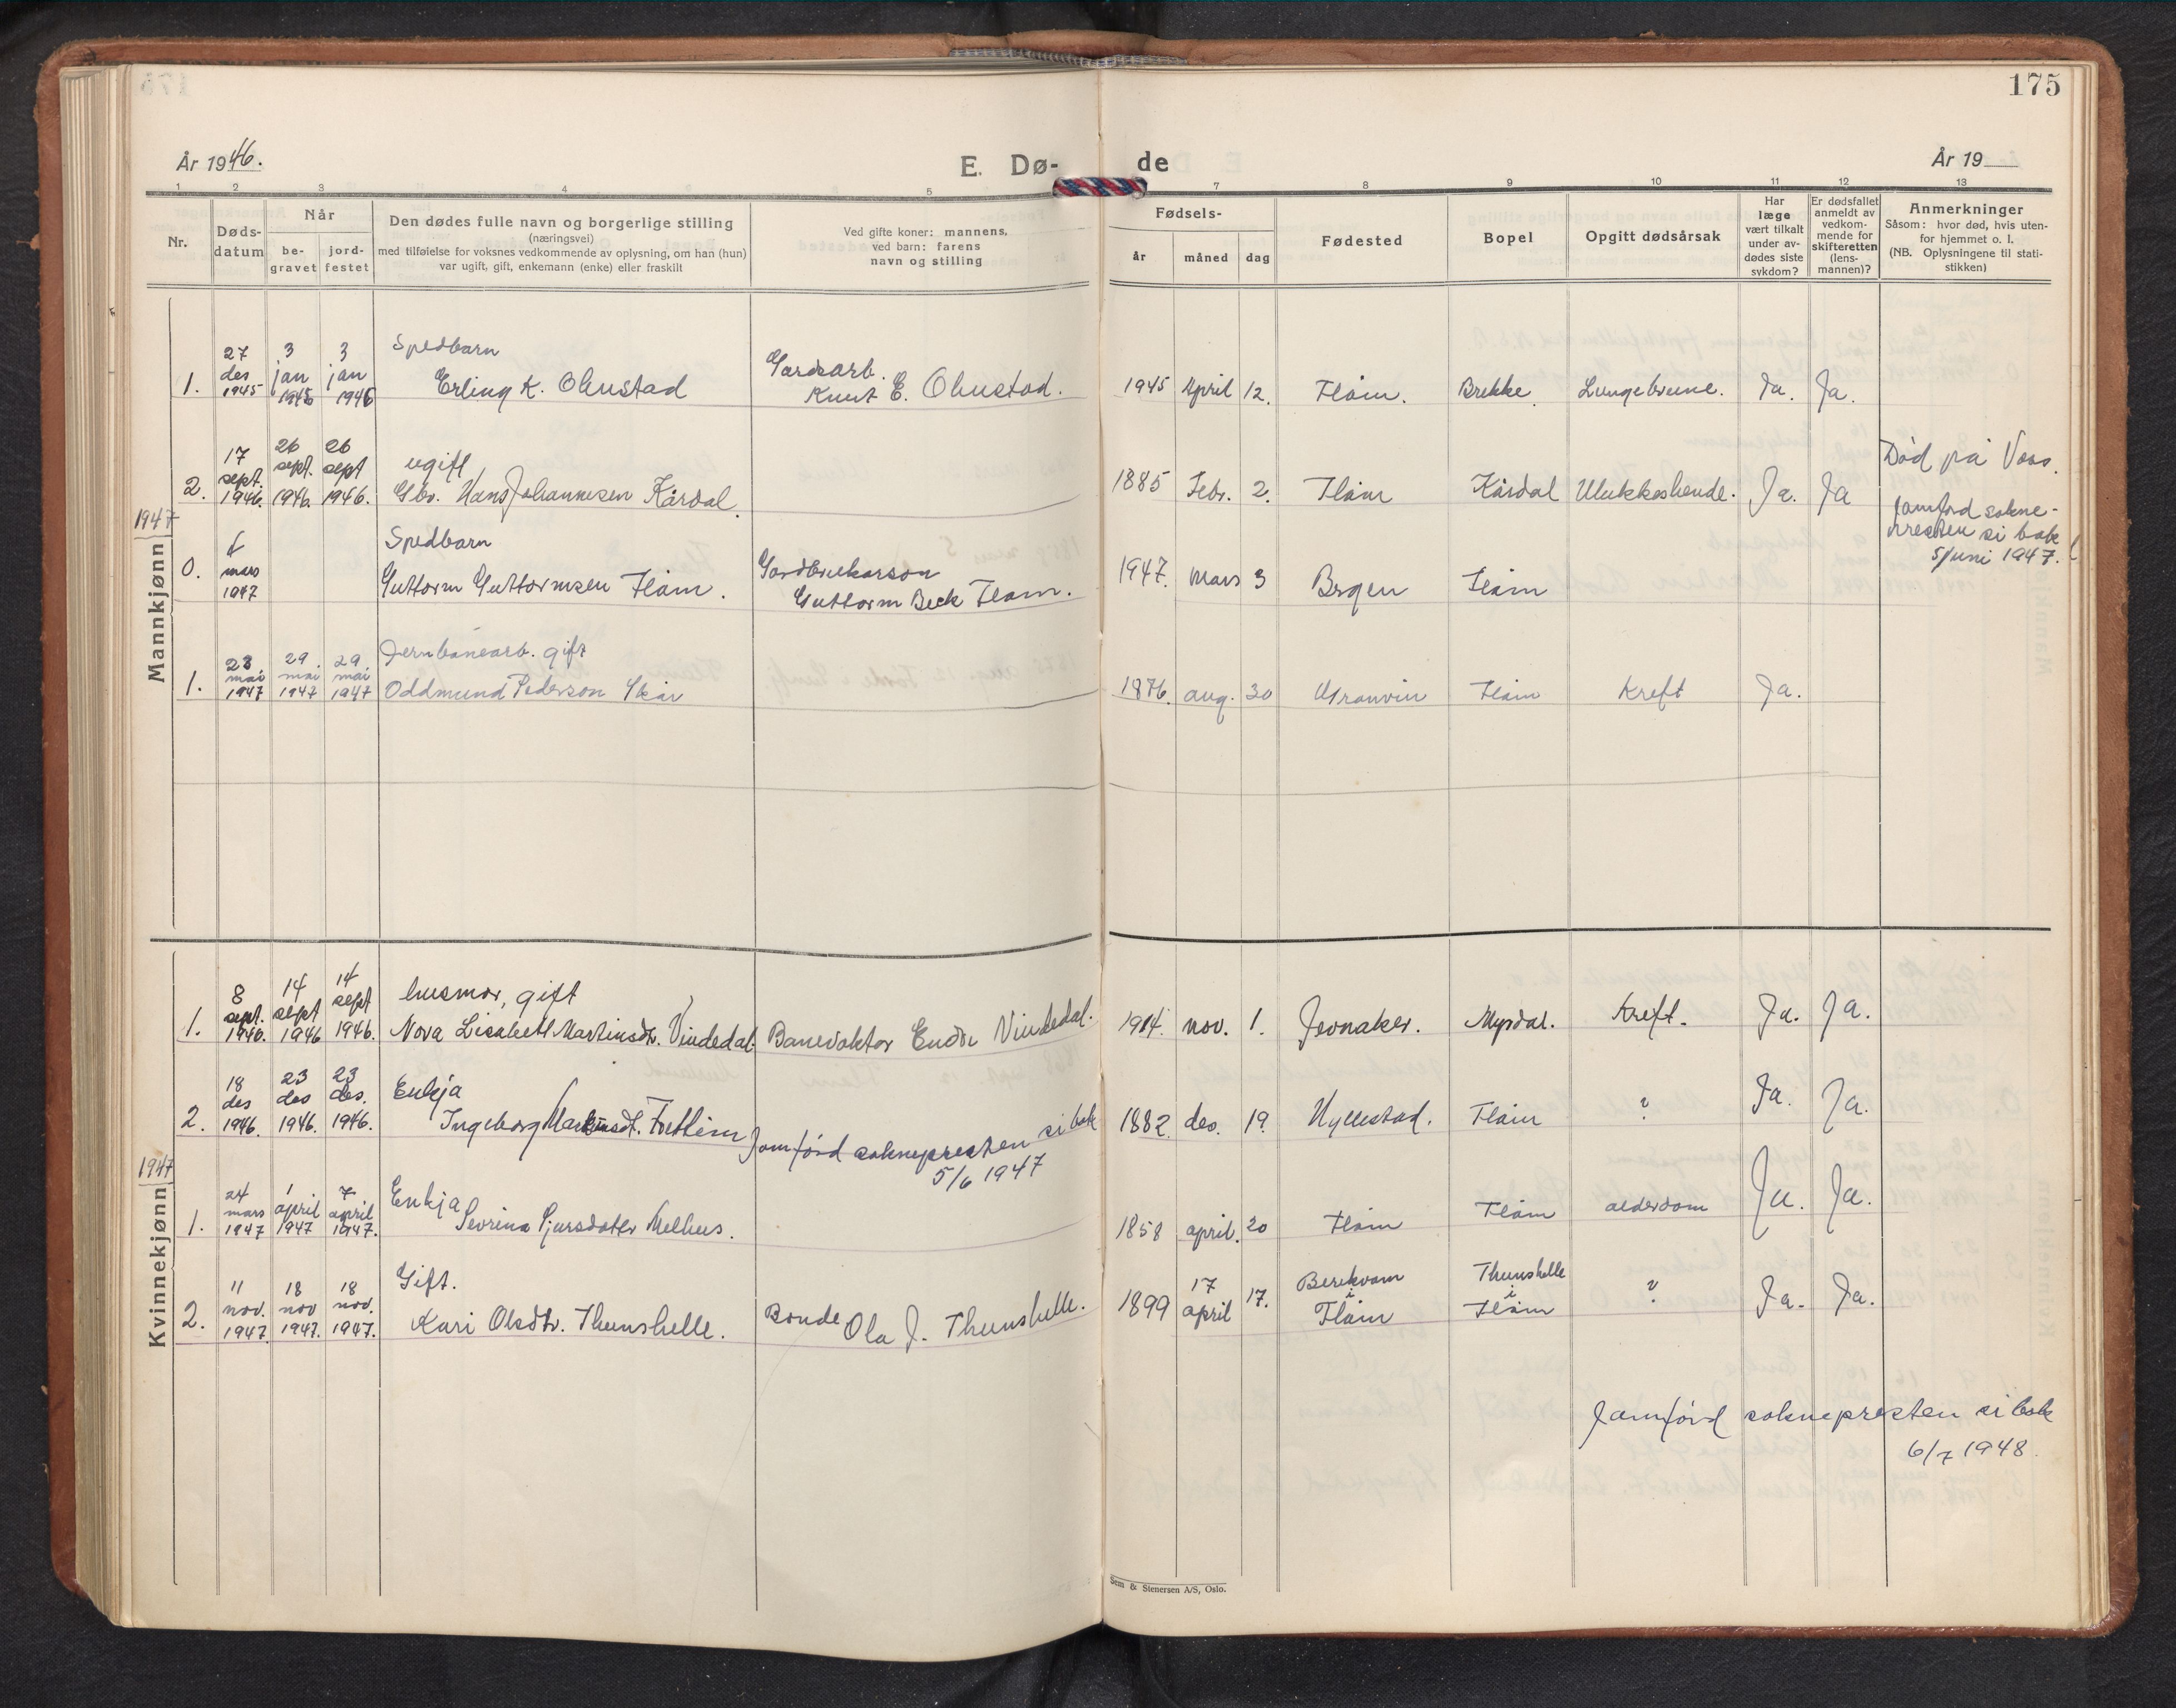 175
År 1946.
E. Dø-
de
År 19
1 2 3 4 5 7 8 9 10 11 12 13
Nr.
Døds-
datum
Når
be-
gravet
jord-
festet
Den dødes fulle navn og borgerlige stilling
(næringsvei)
med tilføielse for voksnes vedkommende av oplysning, om han (hun)
var ugift, gift, enkemann (enke) eller fraskilt
Ved gifte koner: mannens,
ved barn: farens
navn og stilling
Fødsels-
år
måned
dag
Fødested
Bopel
Opgitt dødsårsak
Har
læge
vært tilkalt
under av-
dødes siste
sykdom?
Er dødsfallet
anmeldt av
vedkom-
mende for
skifteretten
(lens-
mannen)?
Anmerkninger
Såsom: hvor død, hvis uten-
for hjemmet o. l.
(NB. Oplysningene til stati-
stikken)
Mannkjønn
1.
27
des
1945
3
jan
1946
3
jan
1946
Spedbarn
Erling K. Ohnstad
Gardsarb.
Knut E. Ohnstad.
1945 April 12. Flåm. Brekke. Lungebetennelse. Ja. Ja.
2.
17
sept.
1946.
26
sept.
1946.
26
sept
1946.
ugift
Gbr. Hans Johannesen Kårdal.
1885 Febr. 2. Flåm Kårdal Ulukkeshende. Ja. Ja
Død på Voss.
Jamførd sokne-
presten si bok
5/juni 1947.
1947
0.
mars
1947
Spedbarn
Guttorm Guttormsen Flåm.
Gardbrukarson
Guttorm Beck Flåm.
1947. Mars 3 Bergen Flåm
1.
23.
mai
1947
29.
mai
1947
29.
mai
1947
Jernbanearb. gift
Oddmund Pederson Skår
1876. aug. 30 Granvin Flåm Kreft Ja.
Kvinnekjønn
1.
8
sept.
1946.
14
sept
1946
14
sept
1946.
husmor, gift
Nora Lisabeth Martinsdtr. Vindedal.
Banevaktor Endre Vindedal.
1914. nov. 1. Jevnaker. Myrdal. Kreft. Ja. Ja.
2.
18
des
1946.
23
des
1946.
23
des.
1946.
Enkja
Ingeborg Martinsdt. Fretheim
Jamførd soknepresten si bok
5/6 1947
1882. des. 19. Hyllestad. Flåm ? Ja. Ja.
1947
1.
24
mars
1947
1
april
1947
7
april
1947.
Enkja
Sevrina Sjursdatter Melhus.
1858 april. 20 Flåm Flåm alderdom Ja. Ja.
2.
11
nov.
1947.
18
nov
1947.
18
nov.
1947.
Gift.
Kari Olsdtr. Thunshelle.
Bonde Ola J. Thunshelle.
1899
17
april
17.
Berekvam
i
Flåm
Thunshelle
i
Flåm
? Ja. Ja.
Jamførd soknepresten si bok
6/7 1948.
Sem & Stenersen A/S, Oslo.